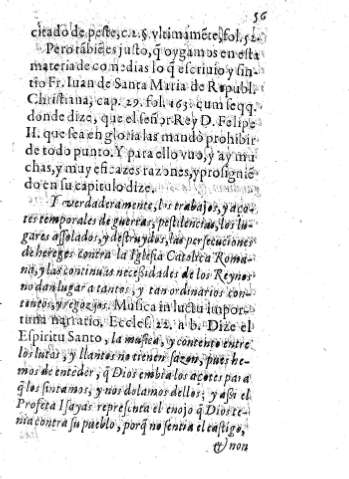 56
citado de peste, c. 2. §. vltimamẽte, fol. 52.
Pero tãbiẽ es justo, q̃ oygamos en esta
materia de comedias lo q̃ escriuio y sin-
tio Fr. Iuan de Santa Maria de Republ.
Christiana, cap. 29. fol. 163. cum seqq.
donde dize, que el señor Rey D. Felipe
II. que sea en gloria las mandò prohibir
de todo punto. Y para ello vuo, y ay mu
chas, y muy eficazes razones, y prosiguiẽ
do en su capitulo dize.
Y verdaderamente, los trabajos, y aço-
tes temporales de guerras, pestilencias, los lu-
gares assolados, y destruydos, las persecuciones
de hereges contra la Iglesia Catolica Roma-
na, y las continuas necessidades de los Reynos
no dan lugar a tantos, y tan ordinarios con-
tentos, y regozijos. Musica in luctu impor-
tuna narratio, Eccles. 22. a b. Dize el
Espiritu Santo, la musica, y contento entre
los lutos, y llantos no tienen sazon, pues he-
mos de entẽder, q̃ Dios embia los açotes para
q̃ los sintamos, y nos dolamos dellos; y assi el
Profeta Isayas representa el enojo q̃ Dios te-
nia contra su pueblo, porq̃ no sentia el castigo,
& non